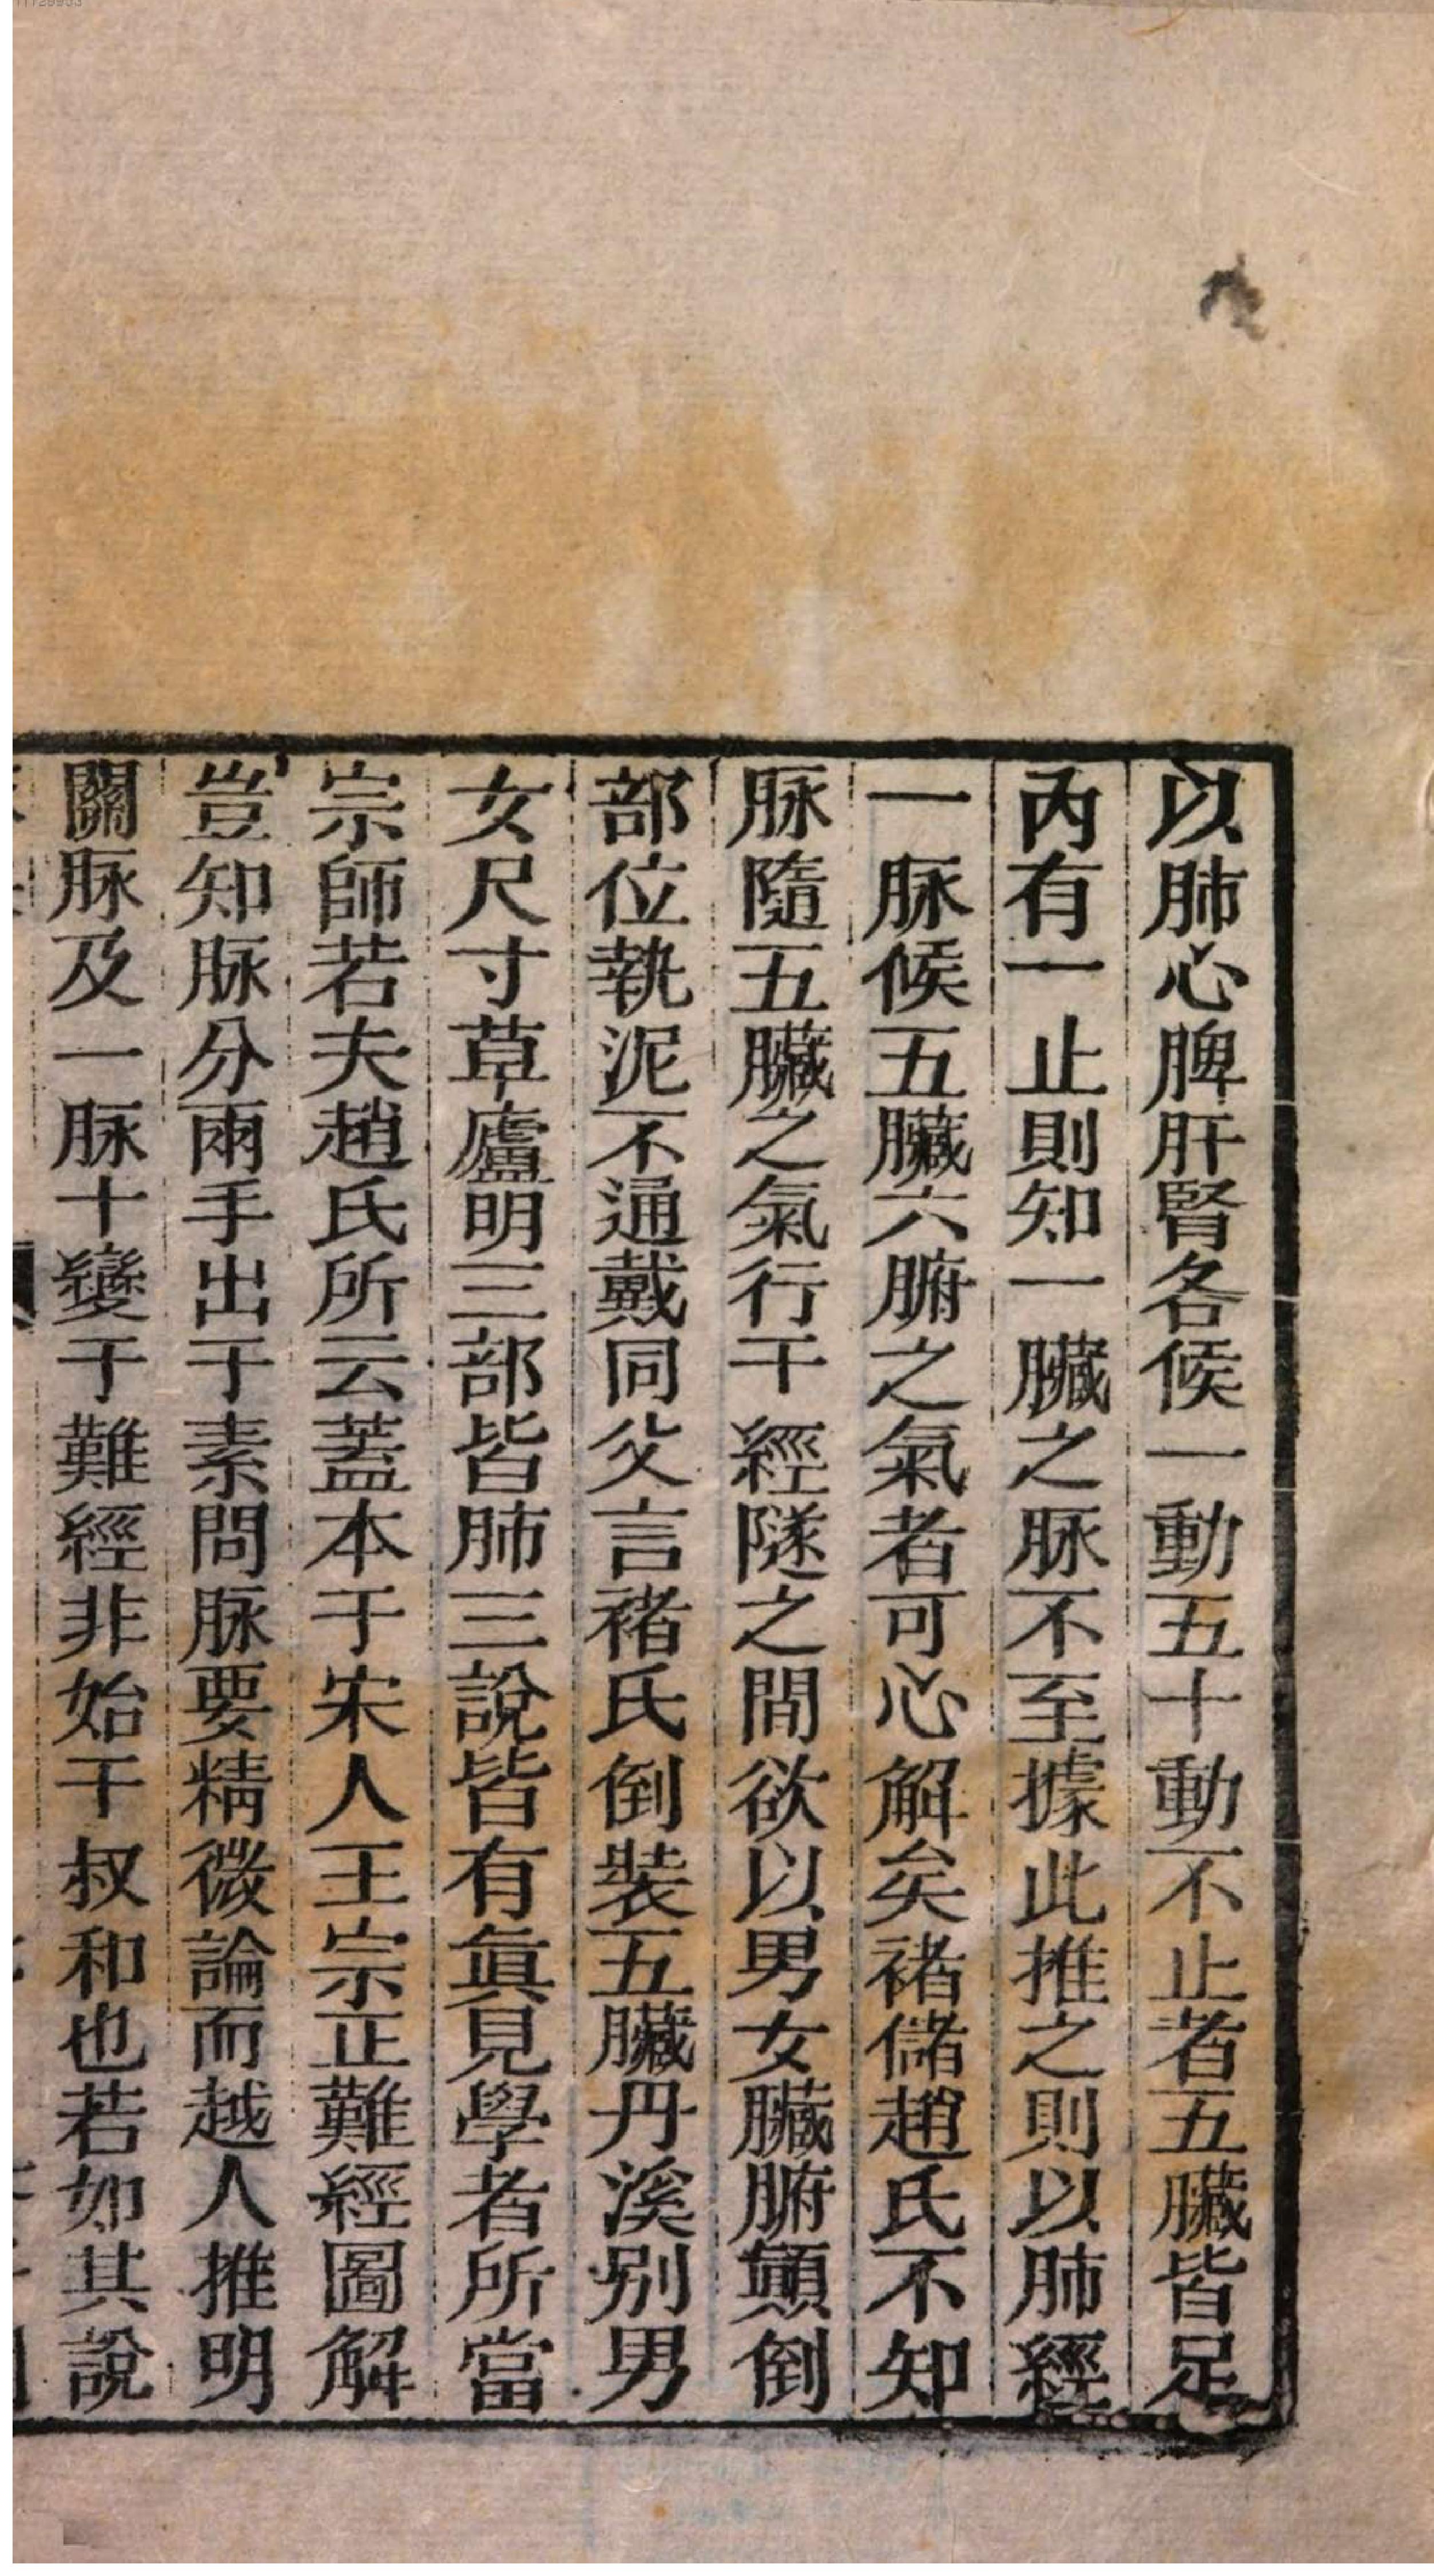 以肺心脾肝腎各候一動五十動不止者五臟皆足
內有一止則知一臟之脉不至據此推之則以肺經
一脉候五臟六腑之氣者可心解矣褚儲趙氏不知
脉隨五臟之氣行于經隧之間欲以男女臟腑顛倒
部位執泥不通戴同父言褚氏倒裝五臟丹溪別男
女尺寸草廬明三部皆肺三說皆有眞見學者所當
宗師若夫趙氏所云蓋本于宋人王宗正難經圖解
豈知脉分兩手出于素問脉要精微論而越人推明
關脉及一脉十變于難經非始于叔和也若如其說